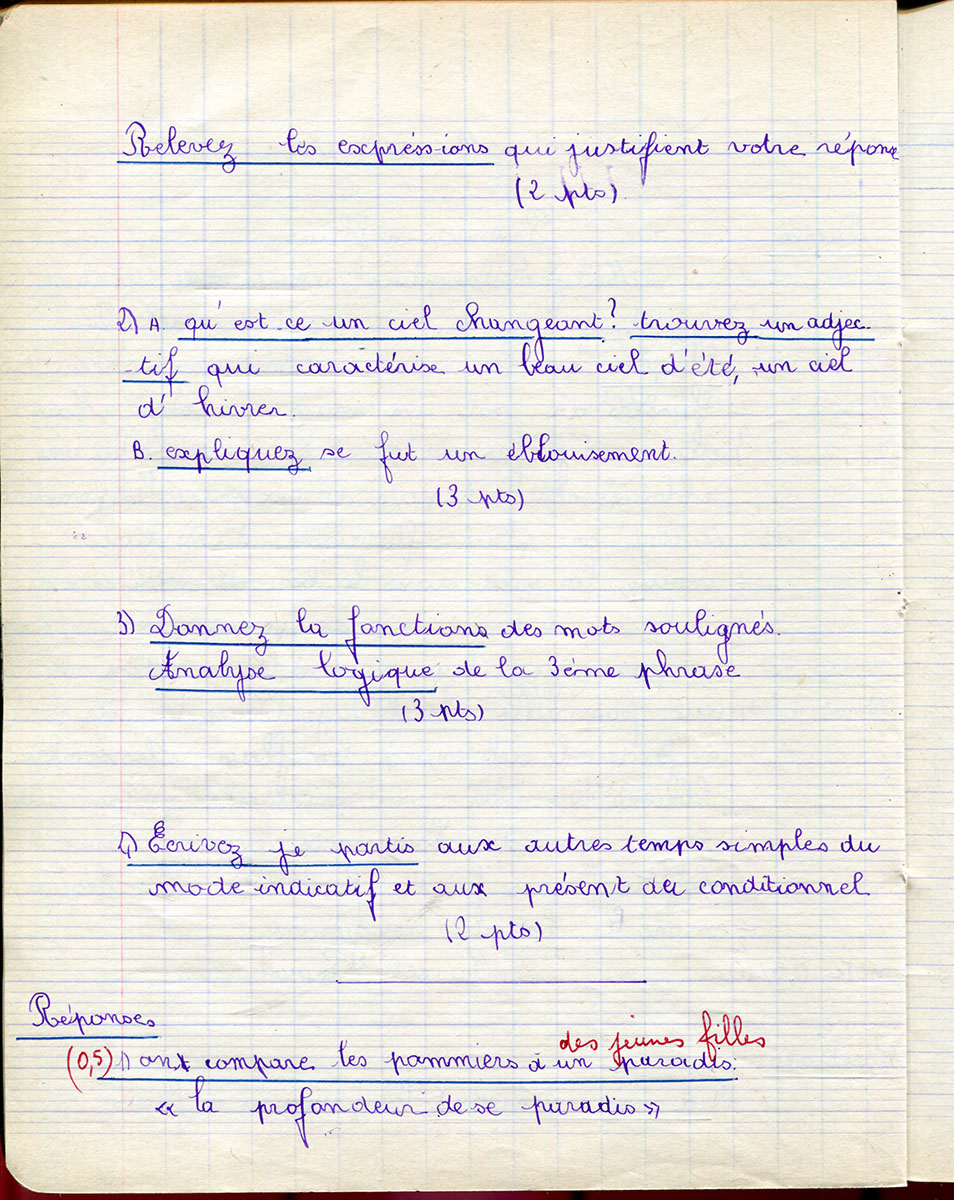 Relevez les expréssions qui justifient votre répons
(2 pts)
2) A qu'est ce un ciel changeant? trouvez un adjec-
-tif qui caractérise un beau ciel d'été, un ciel
d' hivrer.
B. expliquez se fut un éblouisement.
(3 pts)
3) Donnez la fonctions des mots soulignés.
Analyse logique de la 3ème phrase
(3 pts)
4) Ecrivez je partis aux autres temps simples du
mode indicatif et aux présent du conditionnel
(2 pts)
Réponses
des jeunes filles
(0,5) 1) on compare les pommiers à un paradis.
« la profondeur de se paradis »